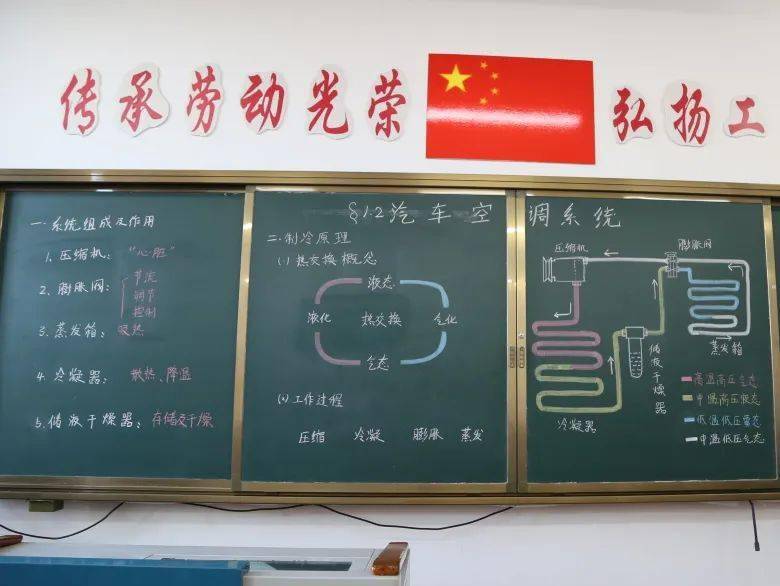 传承劳动光荣
弘扬工
§1.2汽车空调系统
一.系统组成及作用
1.压缩机：“心脏”
2.膨胀阀：
节流
调节
控制
3.蒸发箱：吸热
4.冷凝器：散热、降温
5.储液干燥器：存储及干燥
二.制冷原理
(1)热交换概念
液态
液化 热交换 气化
气态
(2)工作过程
压缩 冷凝 膨胀 蒸发
压缩机
膨胀阀
蒸发箱
储液干燥器
冷凝器
高温高压气态
中温高压液态
低温低压雾态
中温低压气态